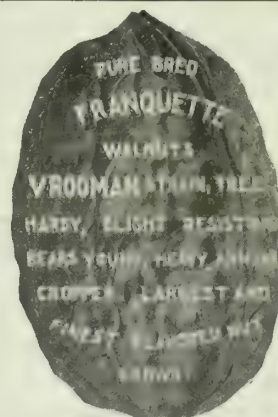 PURE BRED
FRANQUETTE
WALNUTS
VROOMAN STRAIN, TREE
HARDY, BLIGHT RESISTING
BEARS YOUNG, HEAVY ANNUAL
CROPPER. LARGEST AND
FINEST FLAVORED NUT
GROWN